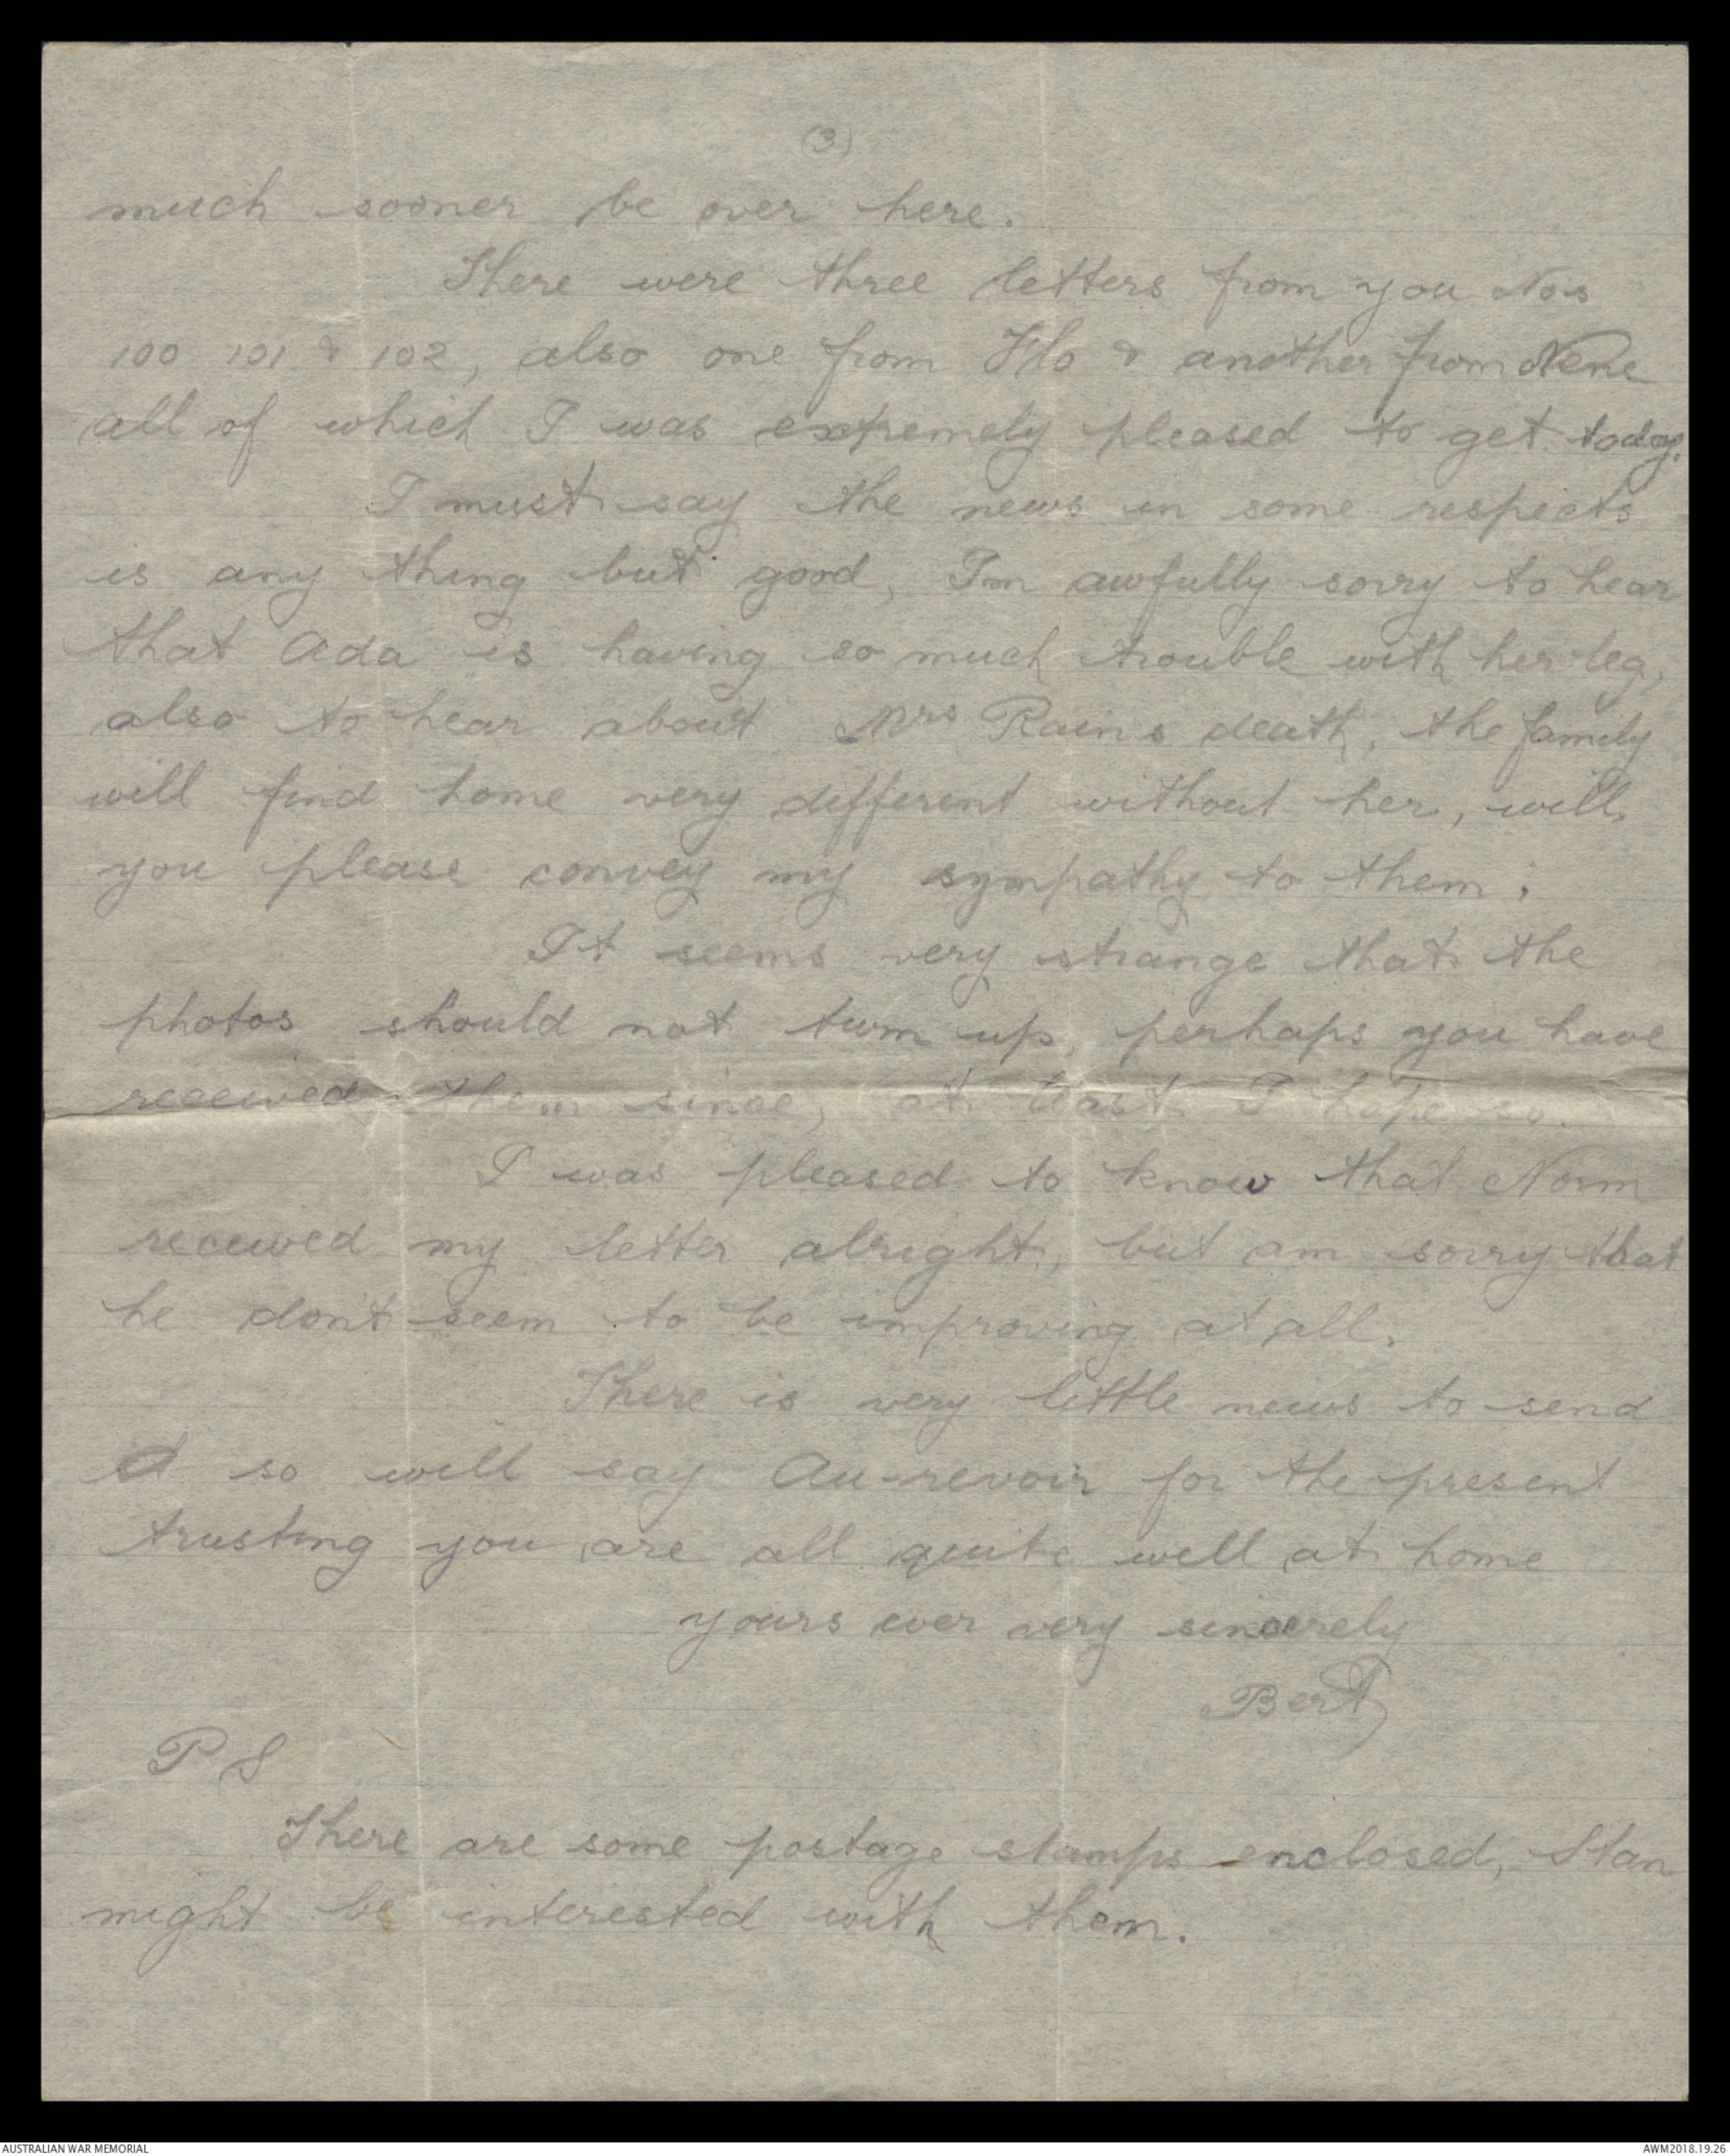 (3)
much sooner be over here.
There were three letters from you Nos
100 101 & 102, also one from Flo & another from Nene
all of which I was extremely pleased to get today.
I must say the news in some respects
is any thing but good, I'm awfully sorry to hear
that Ada is having so much trouble with her leg,
also to hear about Mrs Rains death, the family
will find home very different without her, will
you please convey my sympathy to them.
It seems very strange that the
photos should not turn up, perhaps you have
received them since, at least I hope so.
I was pleased to know that Norm
received my letter alright, but am sorry that
he don't seem to be improving at all.
There is very little news to send
so will say Au-revoir for the present
trusting you are all quite well at home
yours ever very sincerely
Bert
P S
There are some postage stamps enclosed, Stan
might be interested with them.
AUSTRALIAN WAR MEMORIAL
AWM2018.19.26